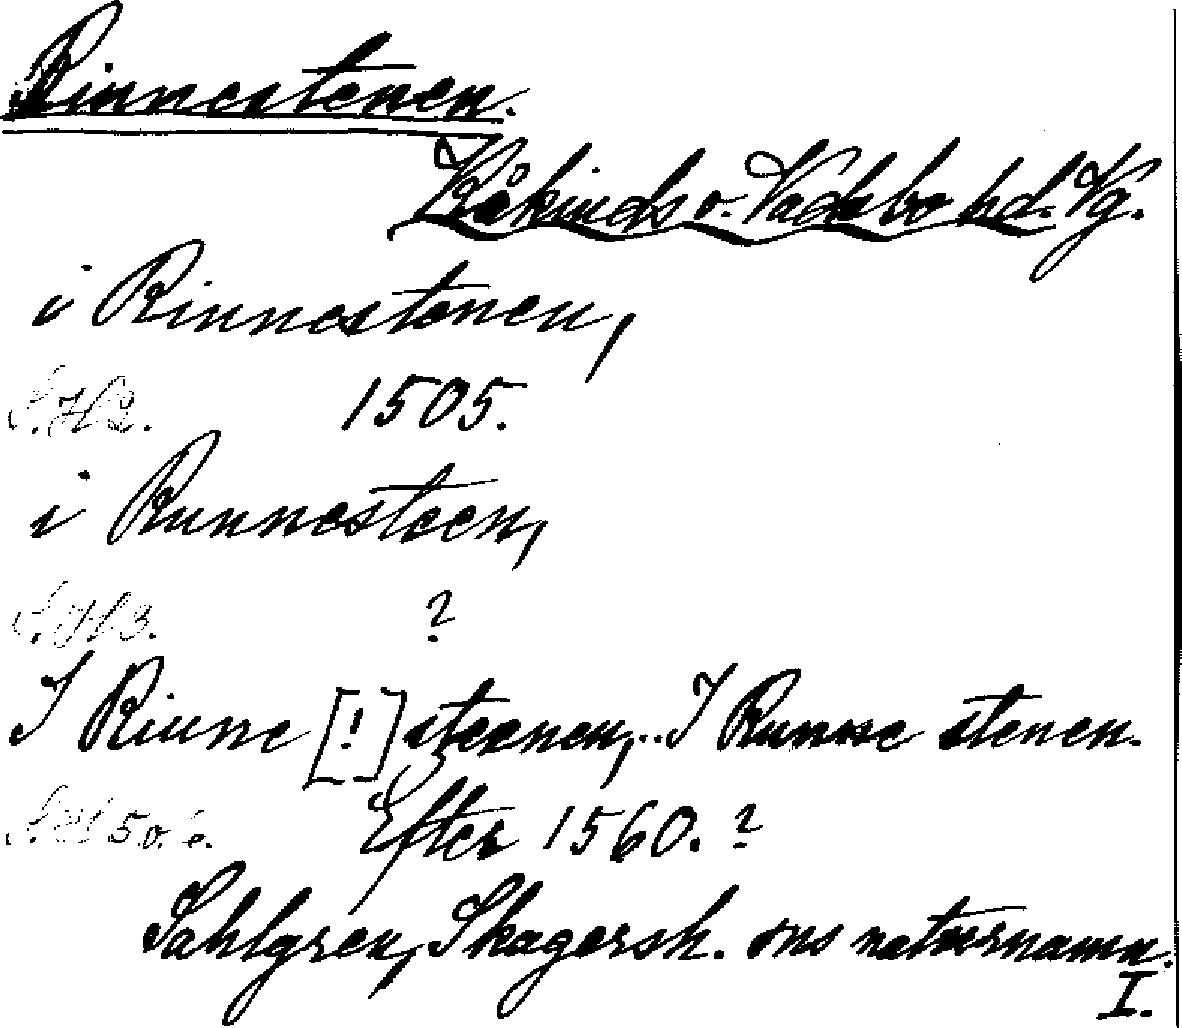 Rinnestenen.
Kåkinds o. Vadsbo hd. Vg.
i Rinnestenen,
S. H 2. 1505.
i Runnesteen,
S. H 3. ?
I Rinne [!] steenen, .. I Runne stenen.
S. H 5 o. 6. Efter 1560. ?
Sahlgren, Skagersh. sns naturnamn.
I.